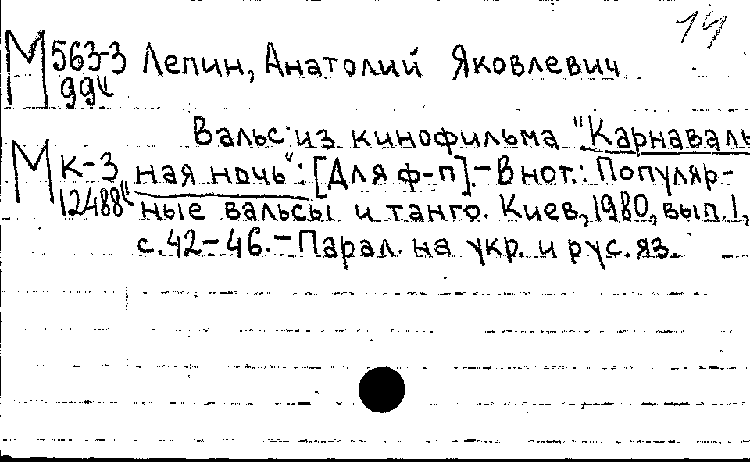 14
М 563-3 Лепин, Анатолий Яковлевич
99ч
Вальс из кинофильма "Карнаваль-
М К-3 ная ночь": [Для ф-п].-В нот.: Популяр-
12488ч ные вальсы и танго. Киев, 1980, вып. 1,
с. 42-46.-Парал. на укр. и рус. яз.